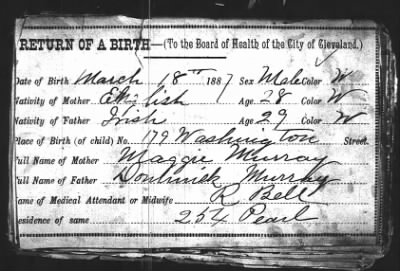 RETURN OF A BIRTH—(To the Board of Health of the City of Cleveland.)
Date of Birth March 18th 1887 Sex Male Color W
Nativity of Mother English Age 28 Color W
Nativity of Father Irish Age 29 Color W
Place of Birth (of child) No. 179 Washington Street.
Full Name of Mother Maggie Murray
Full Name of Father Dominick Murray
Name of Medical Attendant or Midwife R Bell
Residence of same 254 Pearl